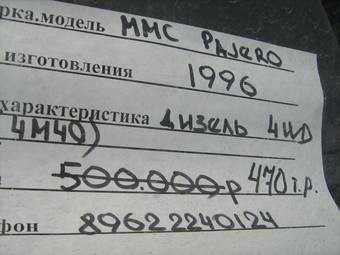 рка.модель ММС PAJERO
изготовления 1996
характеристика дизель 4WD
4М40)
500.000р 470т.р.
фон 89622240124